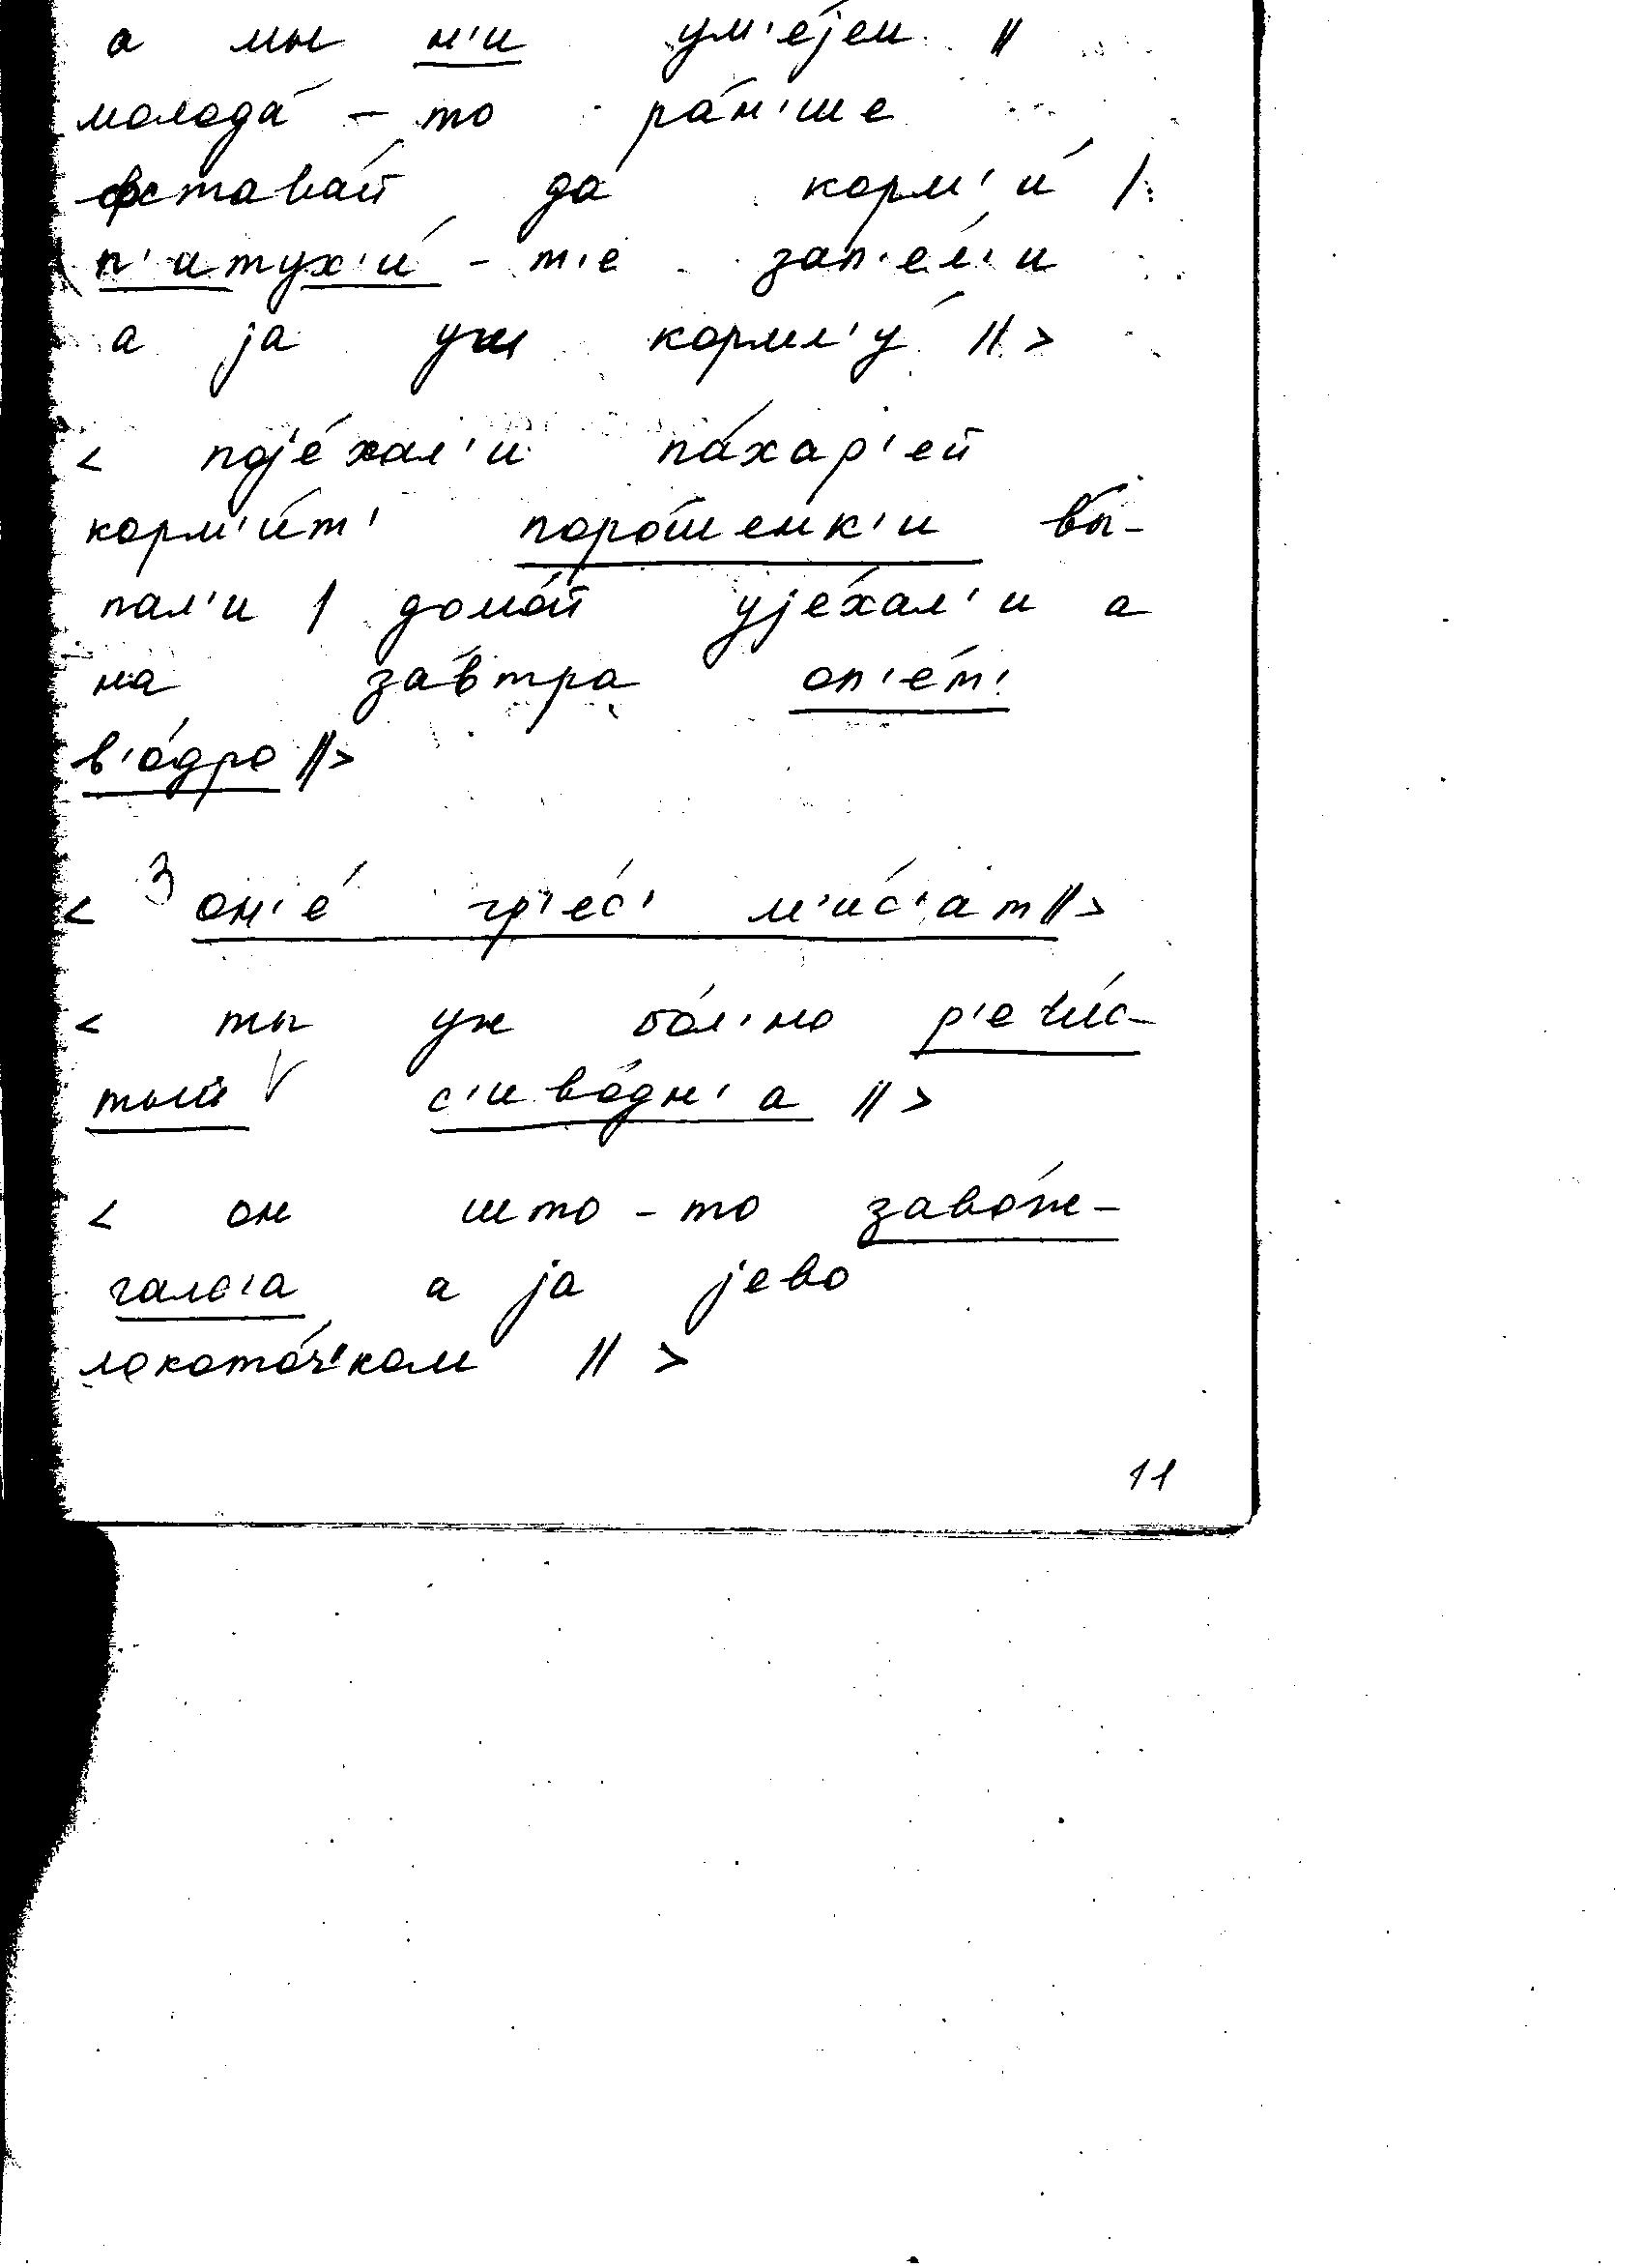 а мы н'и ум'е́јем ||
молода́ - то ра́н'ше
фстава́й да корм'и́ |
п'атух'и́ - т'е зап'е́л'и
а ја уш кормл'у́ || >
< пође́хал'и па́хар'ей
корм'и́т' поро́шенк'и вы́-
пал'и | домо́й ује́хал'и а
на за́втра оп'е́т'
в'о́дро || >
< З он'е́ гр'ес' м'и́с'ат || >
< ты уж бо́л'но р'еч'и́с-
тый с'иво́дн'а || >
< он што - то заво́ж-
галс'а а ја јево
локото́ч'ком || >
11